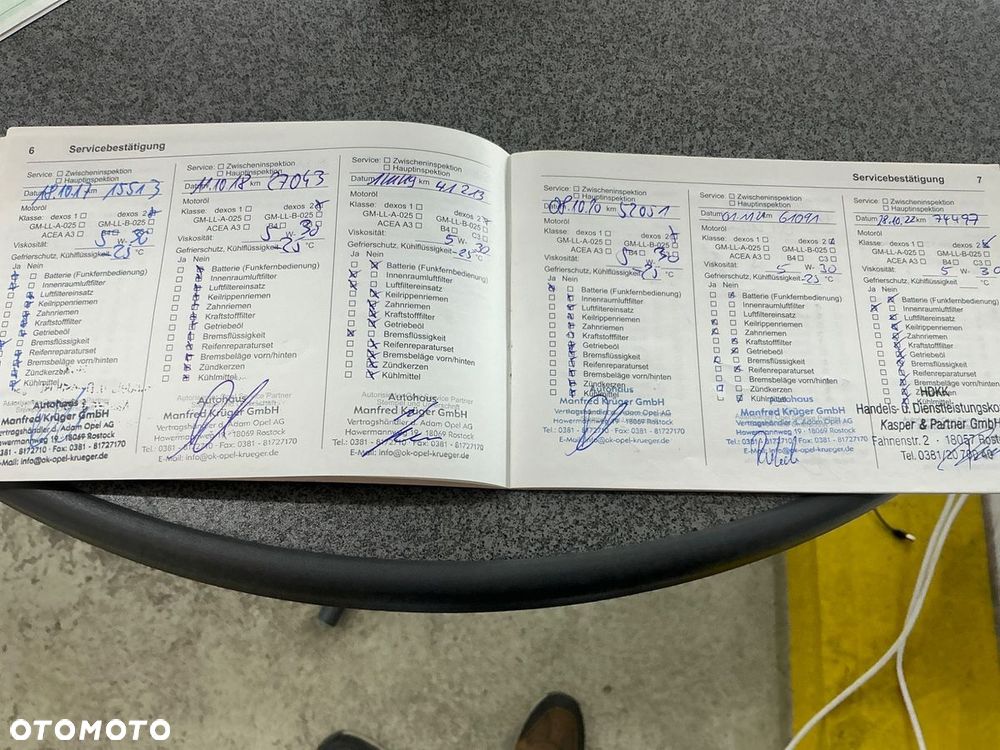 6 Servicebestätigung
Service: Zwischeninspektion
Hauptinspektion
Datum 18.10.17 km 15513
Motoröl
Klasse: dexos 1 dexos 2
GM-LL-A-025 GM-LL-B-025
ACEA A3 B4 C3
Viskosität: 5 W- 30
Gefrierschutz, Kühlflüssigkeit -25 °C
Ja Nein
Batterie (Funkfernbedienung)
Innenraumluftfilter
Luftfiltereinsatz
Keilrippenriemen
Zahnriemen
Kraftstofffilter
Getriebeöl
Bremsflüssigkeit
Reifenreparaturset
Bremsbeläge vorn/hinten
Zündkerzen
Kühlmittel
Autohaus
Manfred Krüger GmbH
Vertragshändler d. Adam Opel AG
Hawermannweg 19 · 18069 Rostock
Tel.: 0381 - 817710 · Fax: 0381 - 81727170
E-Mail: info@ok-opel-krueger.de
Service: Zwischeninspektion
Hauptinspektion
Datum 11.10.18 km 27043
Motoröl
Klasse: dexos 1 dexos 2
GM-LL-A-025 GM-LL-B-025
ACEA A3 B4 C3
Viskosität: 5 W- 30
Gefrierschutz, Kühlflüssigkeit -25 °C
Ja Nein
Batterie (Funkfernbedienung)
Innenraumluftfilter
Luftfiltereinsatz
Keilrippenriemen
Zahnriemen
Kraftstofffilter
Getriebeöl
Bremsflüssigkeit
Reifenreparaturset
Bremsbeläge vorn/hinten
Zündkerzen
Kühlmittel
Autohaus
Manfred Krüger GmbH
Vertragshändler d. Adam Opel AG
Hawermannweg 19 · 18069 Rostock
Fax: 0381 - 81727170
E-Mail: info@ok-opel-krueger.de
Service: Zwischeninspektion
Hauptinspektion
Datum km 41213
Motoröl
Klasse: dexos 1 dexos 2
GM-LL-A-025 GM-LL-B-025
ACEA A3 B4 C3
Viskosität: 5 W- 30
Gefrierschutz, Kühlflüssigkeit -25 °C
Ja Nein
Batterie (Funkfernbedienung)
Innenraumluftfilter
Luftfiltereinsatz
Keilrippenriemen
Zahnriemen
Kraftstofffilter
Getriebeöl
Bremsflüssigkeit
Reifenreparaturset
Bremsbeläge vorn/hinten
Zündkerzen
Kühlmittel
Autohaus
Manfred Krüger GmbH
Vertragshändler d. Adam Opel AG
Hawermannweg 19 · 18069 Rostock
Fax: 0381 - 81727170
E-Mail: info@ok-opel-krueger.de
Servicebestätigung 7
Service: Zwischeninspektion
Hauptinspektion
Datum km 52051
Motoröl
Klasse: dexos 1 dexos 2
GM-LL-A-025 GM-LL-B-025
ACEA A3 B4 C3
Viskosität: 5 W- 30
Gefrierschutz, Kühlflüssigkeit -25 °C
Ja Nein
Batterie (Funkfernbedienung)
Innenraumluftfilter
Luftfiltereinsatz
Keilrippenriemen
Zahnriemen
Kraftstofffilter
Getriebeöl
Bremsflüssigkeit
Reifenreparaturset
Bremsbeläge vorn/hinten
Zündkerzen
Kühlmittel
Autohaus
Manfred Krüger GmbH
Vertragshändler d. Adam Opel AG
Hawermannweg 19 · 18069 Rostock
Fax: 0381 - 81727170
E-Mail: info@ok-opel-krueger.de
Service: Zwischeninspektion
Hauptinspektion
Datum 01.11.21 km 61091
Motoröl
Klasse: dexos 1 dexos 2
GM-LL-A-025 GM-LL-B-025
ACEA A3 B4 C3
Viskosität: 5 W- 30
Gefrierschutz, Kühlflüssigkeit -25 °C
Ja Nein
Batterie (Funkfernbedienung)
Innenraumluftfilter
Luftfiltereinsatz
Keilrippenriemen
Zahnriemen
Kraftstofffilter
Getriebeöl
Bremsflüssigkeit
Reifenreparaturset
Bremsbeläge vorn/hinten
Zündkerzen
Kühlmittel
Autohaus
Manfred Krüger GmbH
Vertragshändler d. Adam Opel AG
Hawermannweg 19 · 18069 Rostock
Fax: 0381 - 81727170
E-Mail: info@ok-opel-krueger.de
Service: Zwischeninspektion
Hauptinspektion
Datum 28.10.22 km 74497
Motoröl
Klasse: dexos 1 dexos 2
GM-LL-A-025 GM-LL-B-025
ACEA A3 B4 C3
Viskosität: 5 W- 30
Gefrierschutz, Kühlflüssigkeit °C
Ja Nein
Batterie (Funkfernbedienung)
Innenraumluftfilter
Luftfiltereinsatz
Keilrippenriemen
Zahnriemen
Kraftstofffilter
Getriebeöl
Bremsflüssigkeit
Reifenreparaturset
Bremsbeläge vorn/hinten
Zündkerzen
HDKK
Handels- u. Dienstleistungsko
Kasper & Partner GmbH
Fahnenstr. 2 · 18057 Rost
Tel. 0381/20 700 40
OTOMOTO